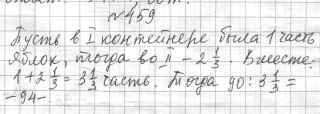 №459
Пусть в I контейнере была 1 часть
яблок, тогда во II – 2 1/3. Вместе:
1+2 1/3 = 3 1/3 часть. Тогда 90 : 3 1/3 =
-94-